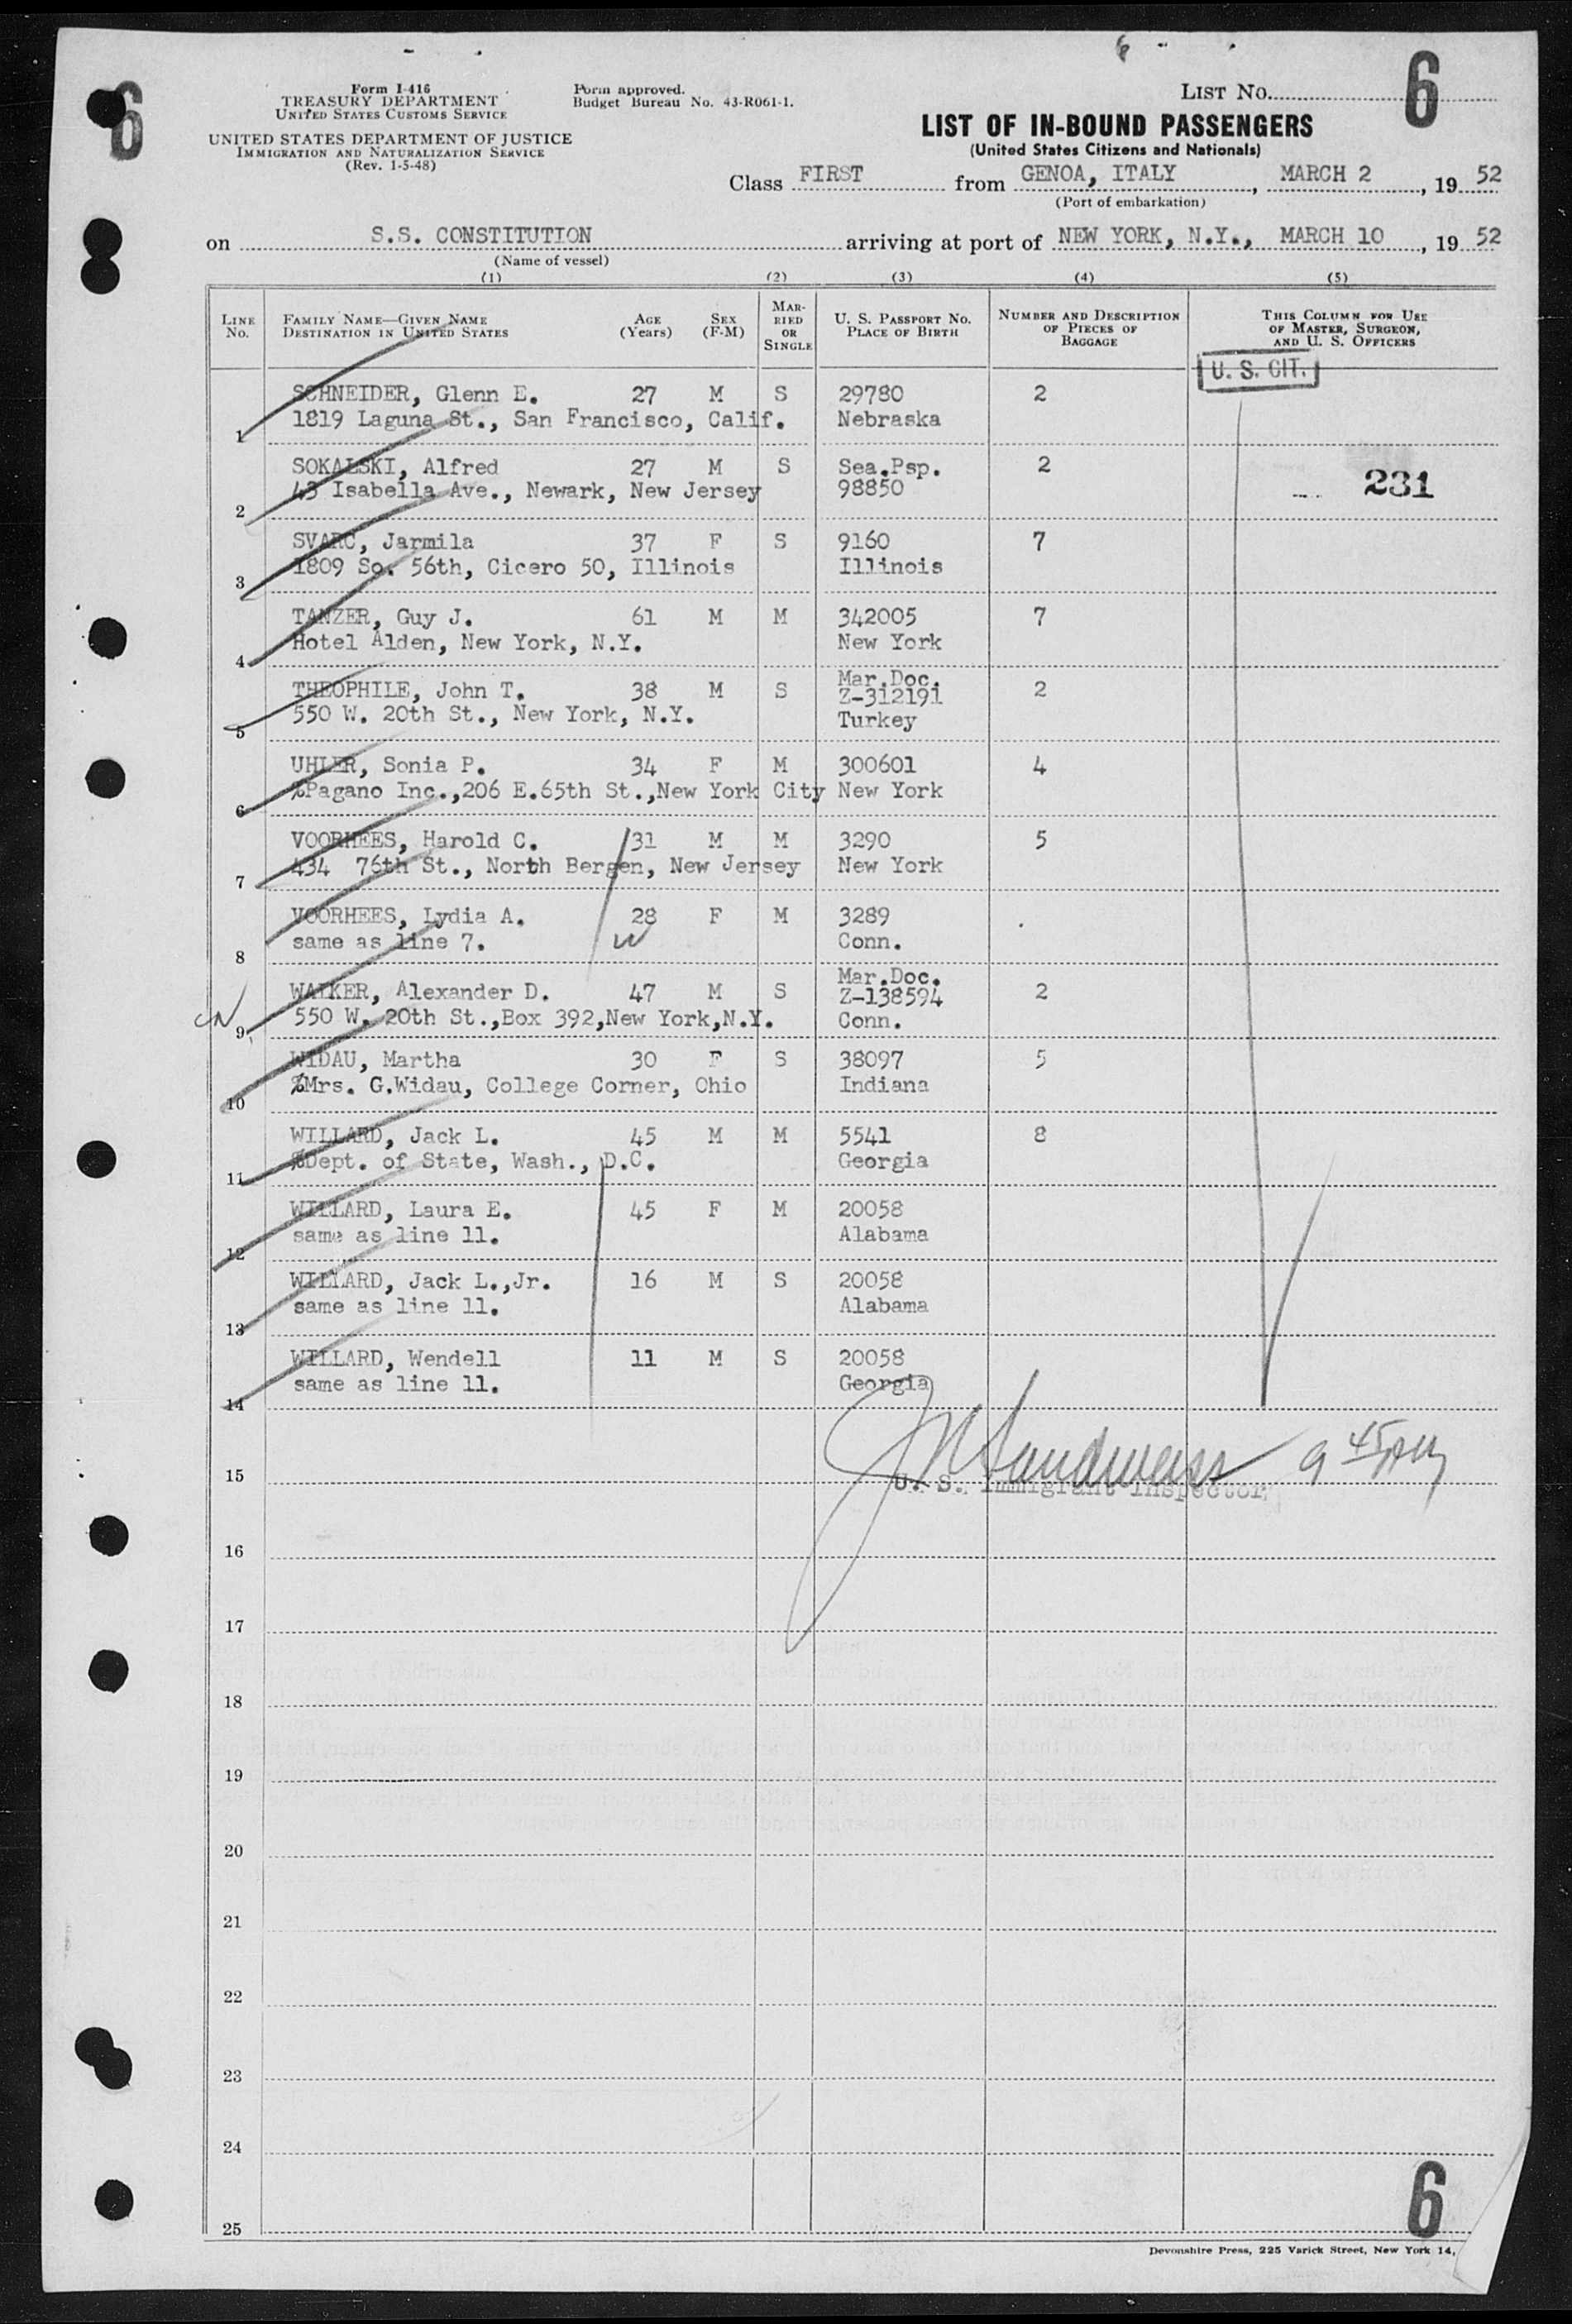 6
Form I-416
TREASURY DEPARTMENT
UNITED STATES CUSTOMS SERVICE
UNITED STATES DEPARTMENT OF JUSTICE
IMMIGRATION AND NATURALIZATION SERVICE
(Rev. 1-5-48)
Form approved.
Budget Bureau No. 43-R061-1.
LIST NO. 6
LIST OF IN-BOUND PASSENGERS
(United States Citizens and Nationals)
Class FIRST from GENOA, ITALY, MARCH 2, 19 52
(Port of embarkation)
on S.S. CONSTITUTION arriving at port of NEW YORK, N.Y., MARCH 10, 19 52
(Name of vessel)
(1) (2) (3) (4) (5)
LINE NO.
FAMILY NAME—GIVEN NAME
DESTINATION IN UNITED STATES
AGE (Years)
SEX (F-M)
MARRIED OR SINGLE
U. S. PASSPORT NO.
PLACE OF BIRTH
NUMBER AND DESCRIPTION OF PIECES OF BAGGAGE
THIS COLUMN FOR USE OF MASTER, SURGEON, AND U. S. OFFICERS
U. S. CIT.
SCHNEIDER, Glenn E. 27 M S 29780 2
1 1819 Laguna St., San Francisco, Calif. Nebraska
SOKALSKI, Alfred 27 M S Sea.Psp. 2
2 43 Isabella Ave., Newark, New Jersey 98850
231
SVARC, Jarmila 37 F S 9160 7
3 1809 So. 56th, Cicero 50, Illinois Illinois
TANZER, Guy J. 61 M M 342005 7
4 Hotel Alden, New York, N.Y. New York
Mar.Doc.
THEOPHILE, John T. 38 M S Z-312191 2
5 550 W. 20th St., New York, N.Y. Turkey
UHLER, Sonia P. 34 F M 300601 4
6 %Pagano Inc.,206 E.65th St.,New York City New York
VOORHEES, Harold C. 31 M M 3290 5
7 434 76th St., North Bergen, New Jersey New York
VOORHEES, Lydia A. 28 F M 3289
8 same as line 7. Conn.
Mar.Doc.
WALKER, Alexander D. 47 M S Z-138594 2
9 550 W. 20th St.,Box 392,New York,N.Y. Conn.
WIDAU, Martha 30 F S 38097 5
10 %Mrs. G.Widau, College Corner, Ohio Indiana
WILLARD, Jack L. 45 M M 5541 8
11 %Dept. of State, Wash., D.C. Georgia
WILLARD, Laura E. 45 F M 20058
12 same as line 11. Alabama
WILLARD, Jack L.,Jr. 16 M S 20058
13 same as line 11. Alabama
WILLARD, Wendell 11 M S 20058
14 same as line 11. Georgia
Sandweiss 9 45
15 U. S. Immigrant Inspector
16
17
18
19
20
21
22
23
24
25
6
Devonshire Press, 225 Varick Street, New York 14,